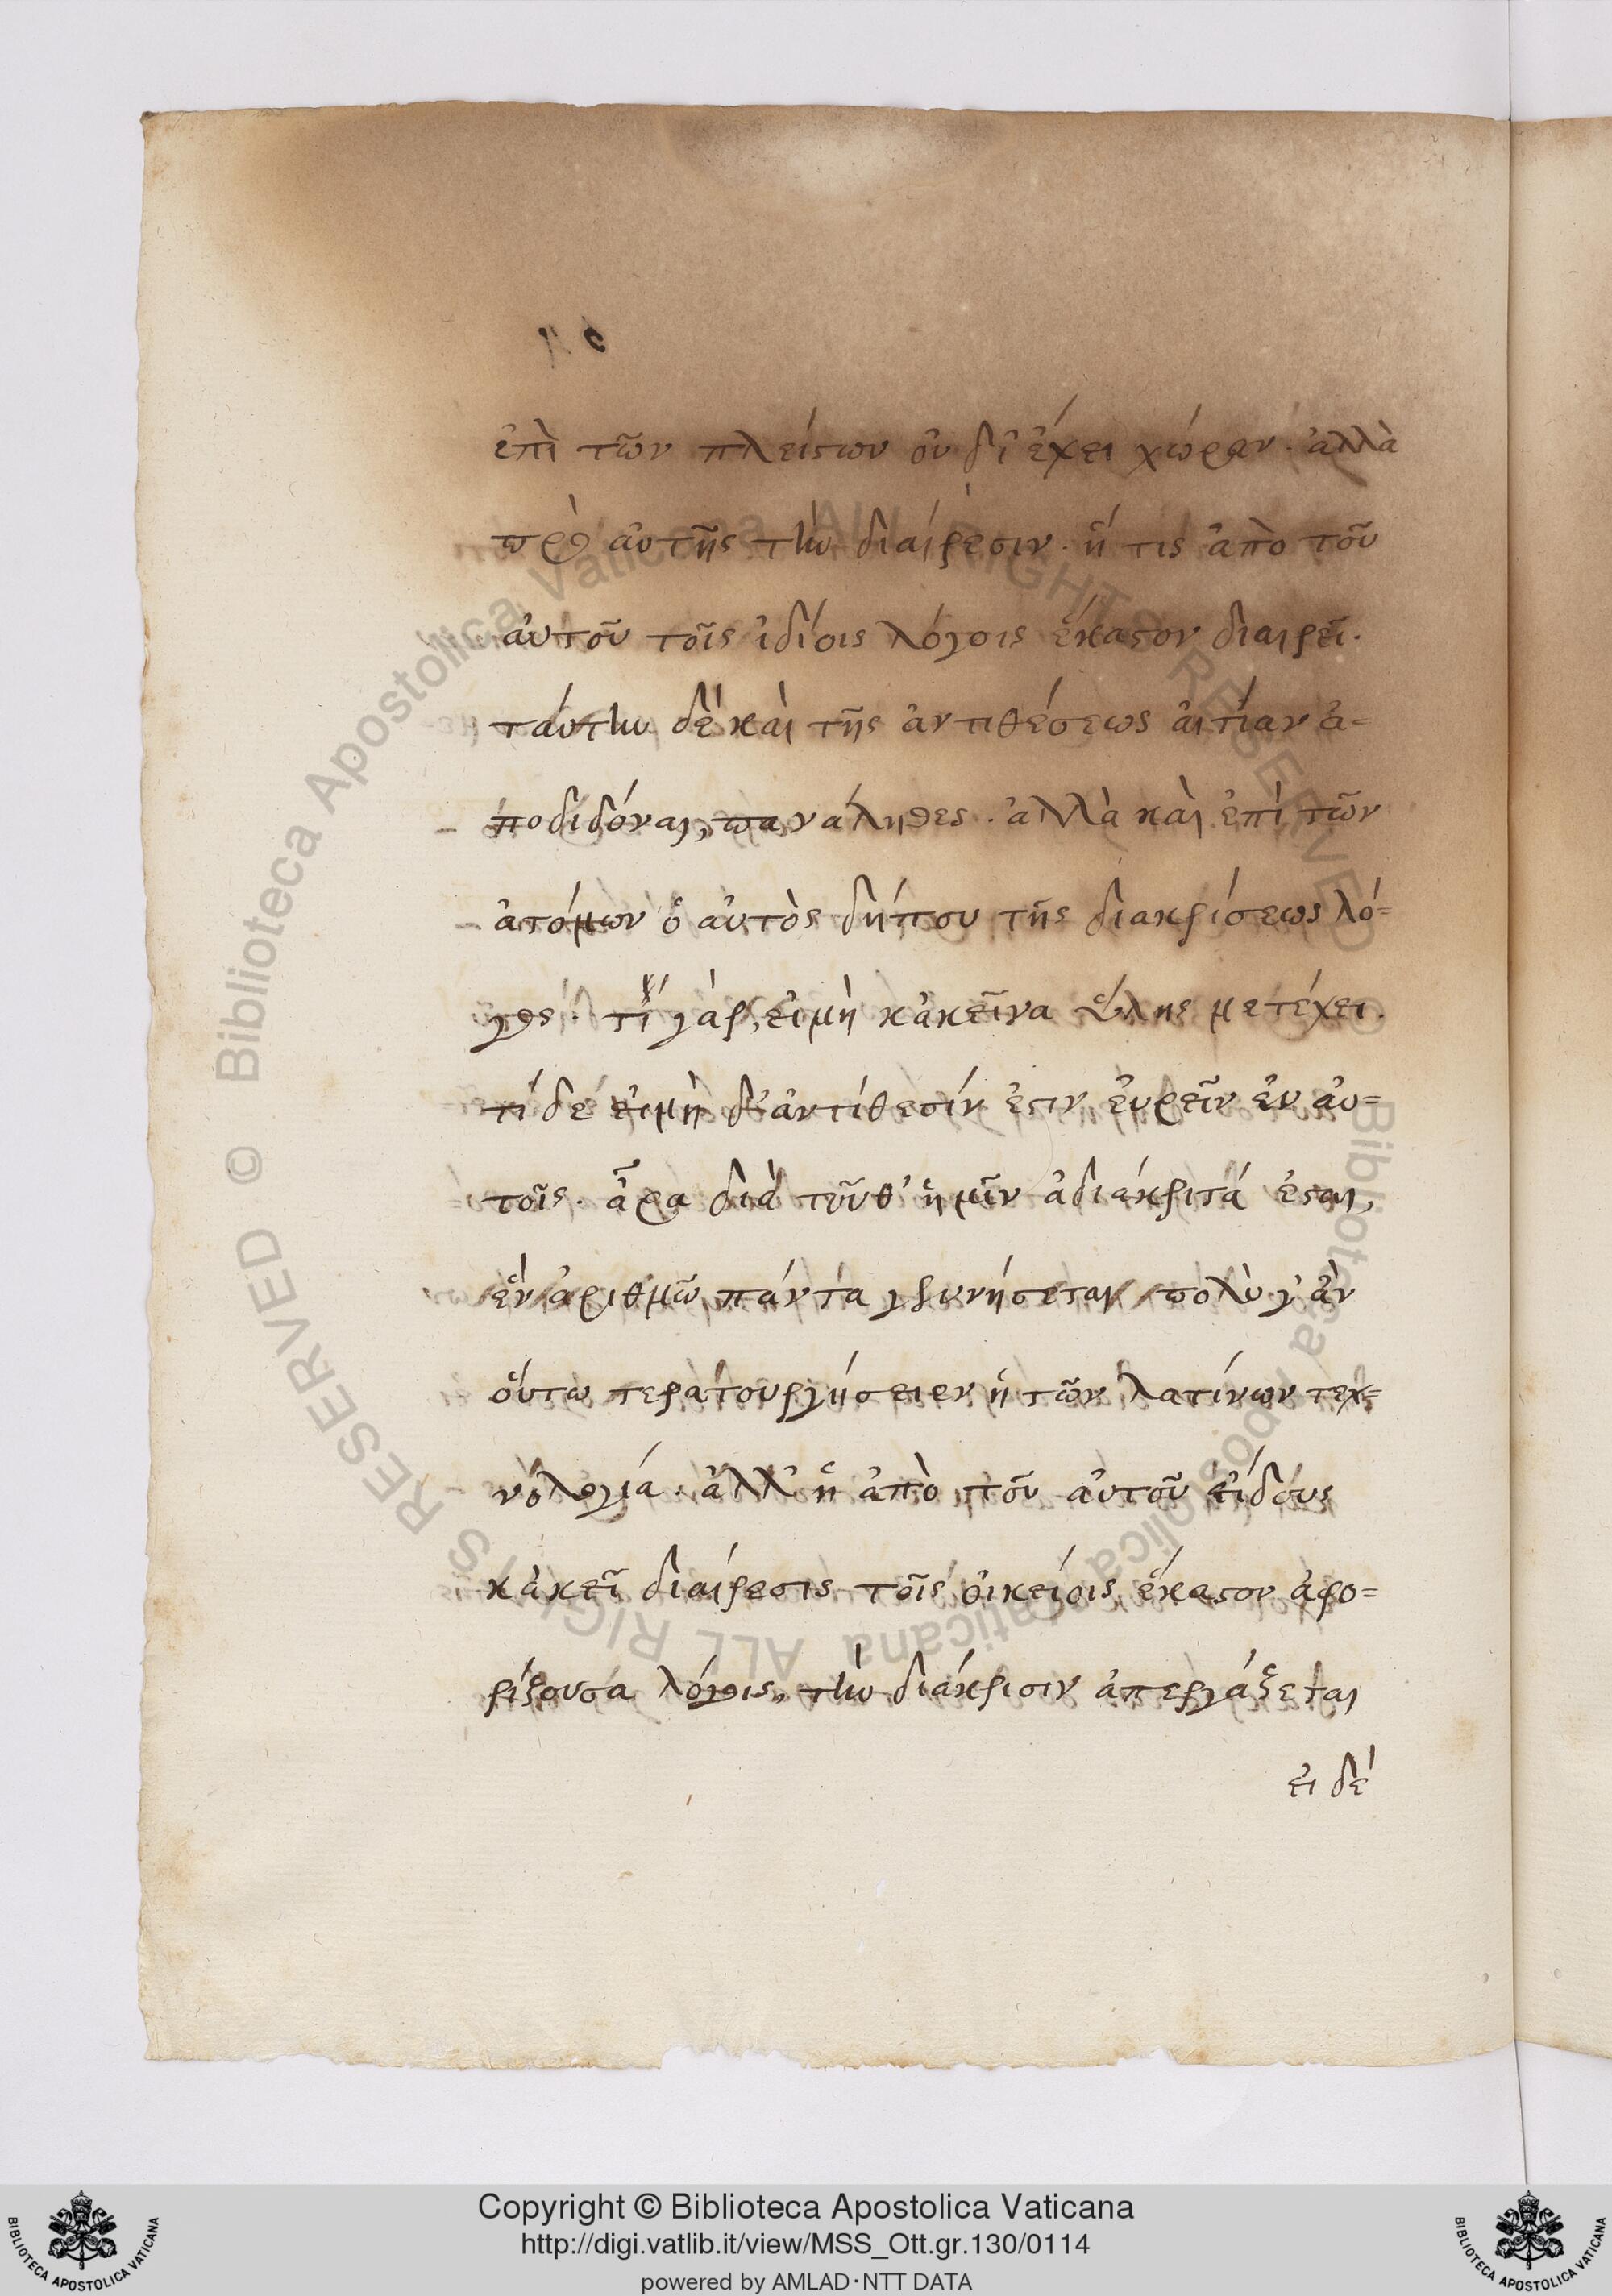 ἐπὶ τῶν πλείστων οὐδ' ἔχει χώραν. ἀλλὰ
πρὸ αὐτῆς τὴν διαίρεσιν. ἥ τις ἀπὸ τοῦ
αὐτοῦ τοῖς ἰδίοις λόγοις ἕκαστον διαιρεῖ.
ταύτην δὲ καὶ τῆς ἀντιθέσεως αἰτίαν ἀ=
ποδιδόναι, παναληθες. ἀλλὰ καὶ ἐπὶ τῶν
ἀτόμων ὁ αὐτὸς δήπου τῆς διακρίσεως λό=
γος. τί γάρ, εἰ μὴ κἀκεῖνα ὕλης μετέχει.
τί δέ εἰ μὴ δ' ἀντίθεσίν ἐστιν εὑρεῖν ἐν αὐ=
τοῖς. ἆρα διὰ τοῦθ' ἡμῖν ἀδιάκριτά ἔσται,
ἓν ἀριθμῶ πάντα γεννήσεται πολὺ γ' ἂν
οὕτω τερατουργήσειεν ἡ τῶν λατίνων τεχ=
νολογία. ἀλλ' ἡ ἀπὸ τοῦ αὐτοῦ εἴδους
κἀκεῖ διαίρεσις τοῖς οἰκείοις ἕκαστον ἀφο=
ρίζουσα λόγοις, τὴν διάκρισιν ἀπεργάζεται
εἰ δέ
Copyright © Biblioteca Apostolica Vaticana
http://digi.vatlib.it/view/MSS_Ott.gr.130/0114
powered by AMLAD·NTT DATA
BIBLIOTECA APOSTOLICA VATICANA
BIBLIOTECA APOSTOLICA VATICANA
© Biblioteca Apostolica Vaticana ALL RIGHTS RESERVED
© Biblioteca Apostolica Vaticana ALL RIGHTS RESERVED